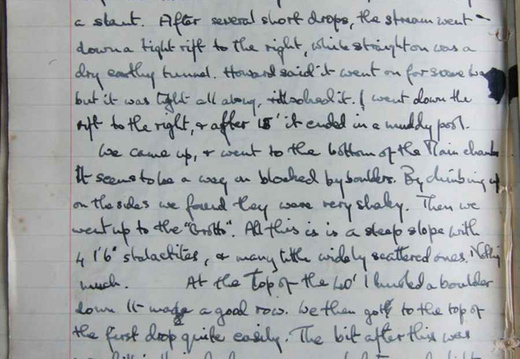 a slant. After several short drops, the stream went
down a tight rift to the right, while straight on was a
dry earthy tunnel. Howard said it went on for some
but it was tight all along, it. I went down the
rift to the right, & after 15' it ended in a muddy pool.
We came up, & went to the bottom of the Main chamber
It seems to be a way on blocked by boulders. By climbing up
on the sides we found they were very shaky. Then we
went up to the "Grotto". All this is is a steep slope with
4 1'6" stalactites, & many little widely scattered ones. Nothing
much. At the Top of the 40' I hurled a boulder
down. It made a good row. We then got to the top of
the first drop quite easily. The bit after this was